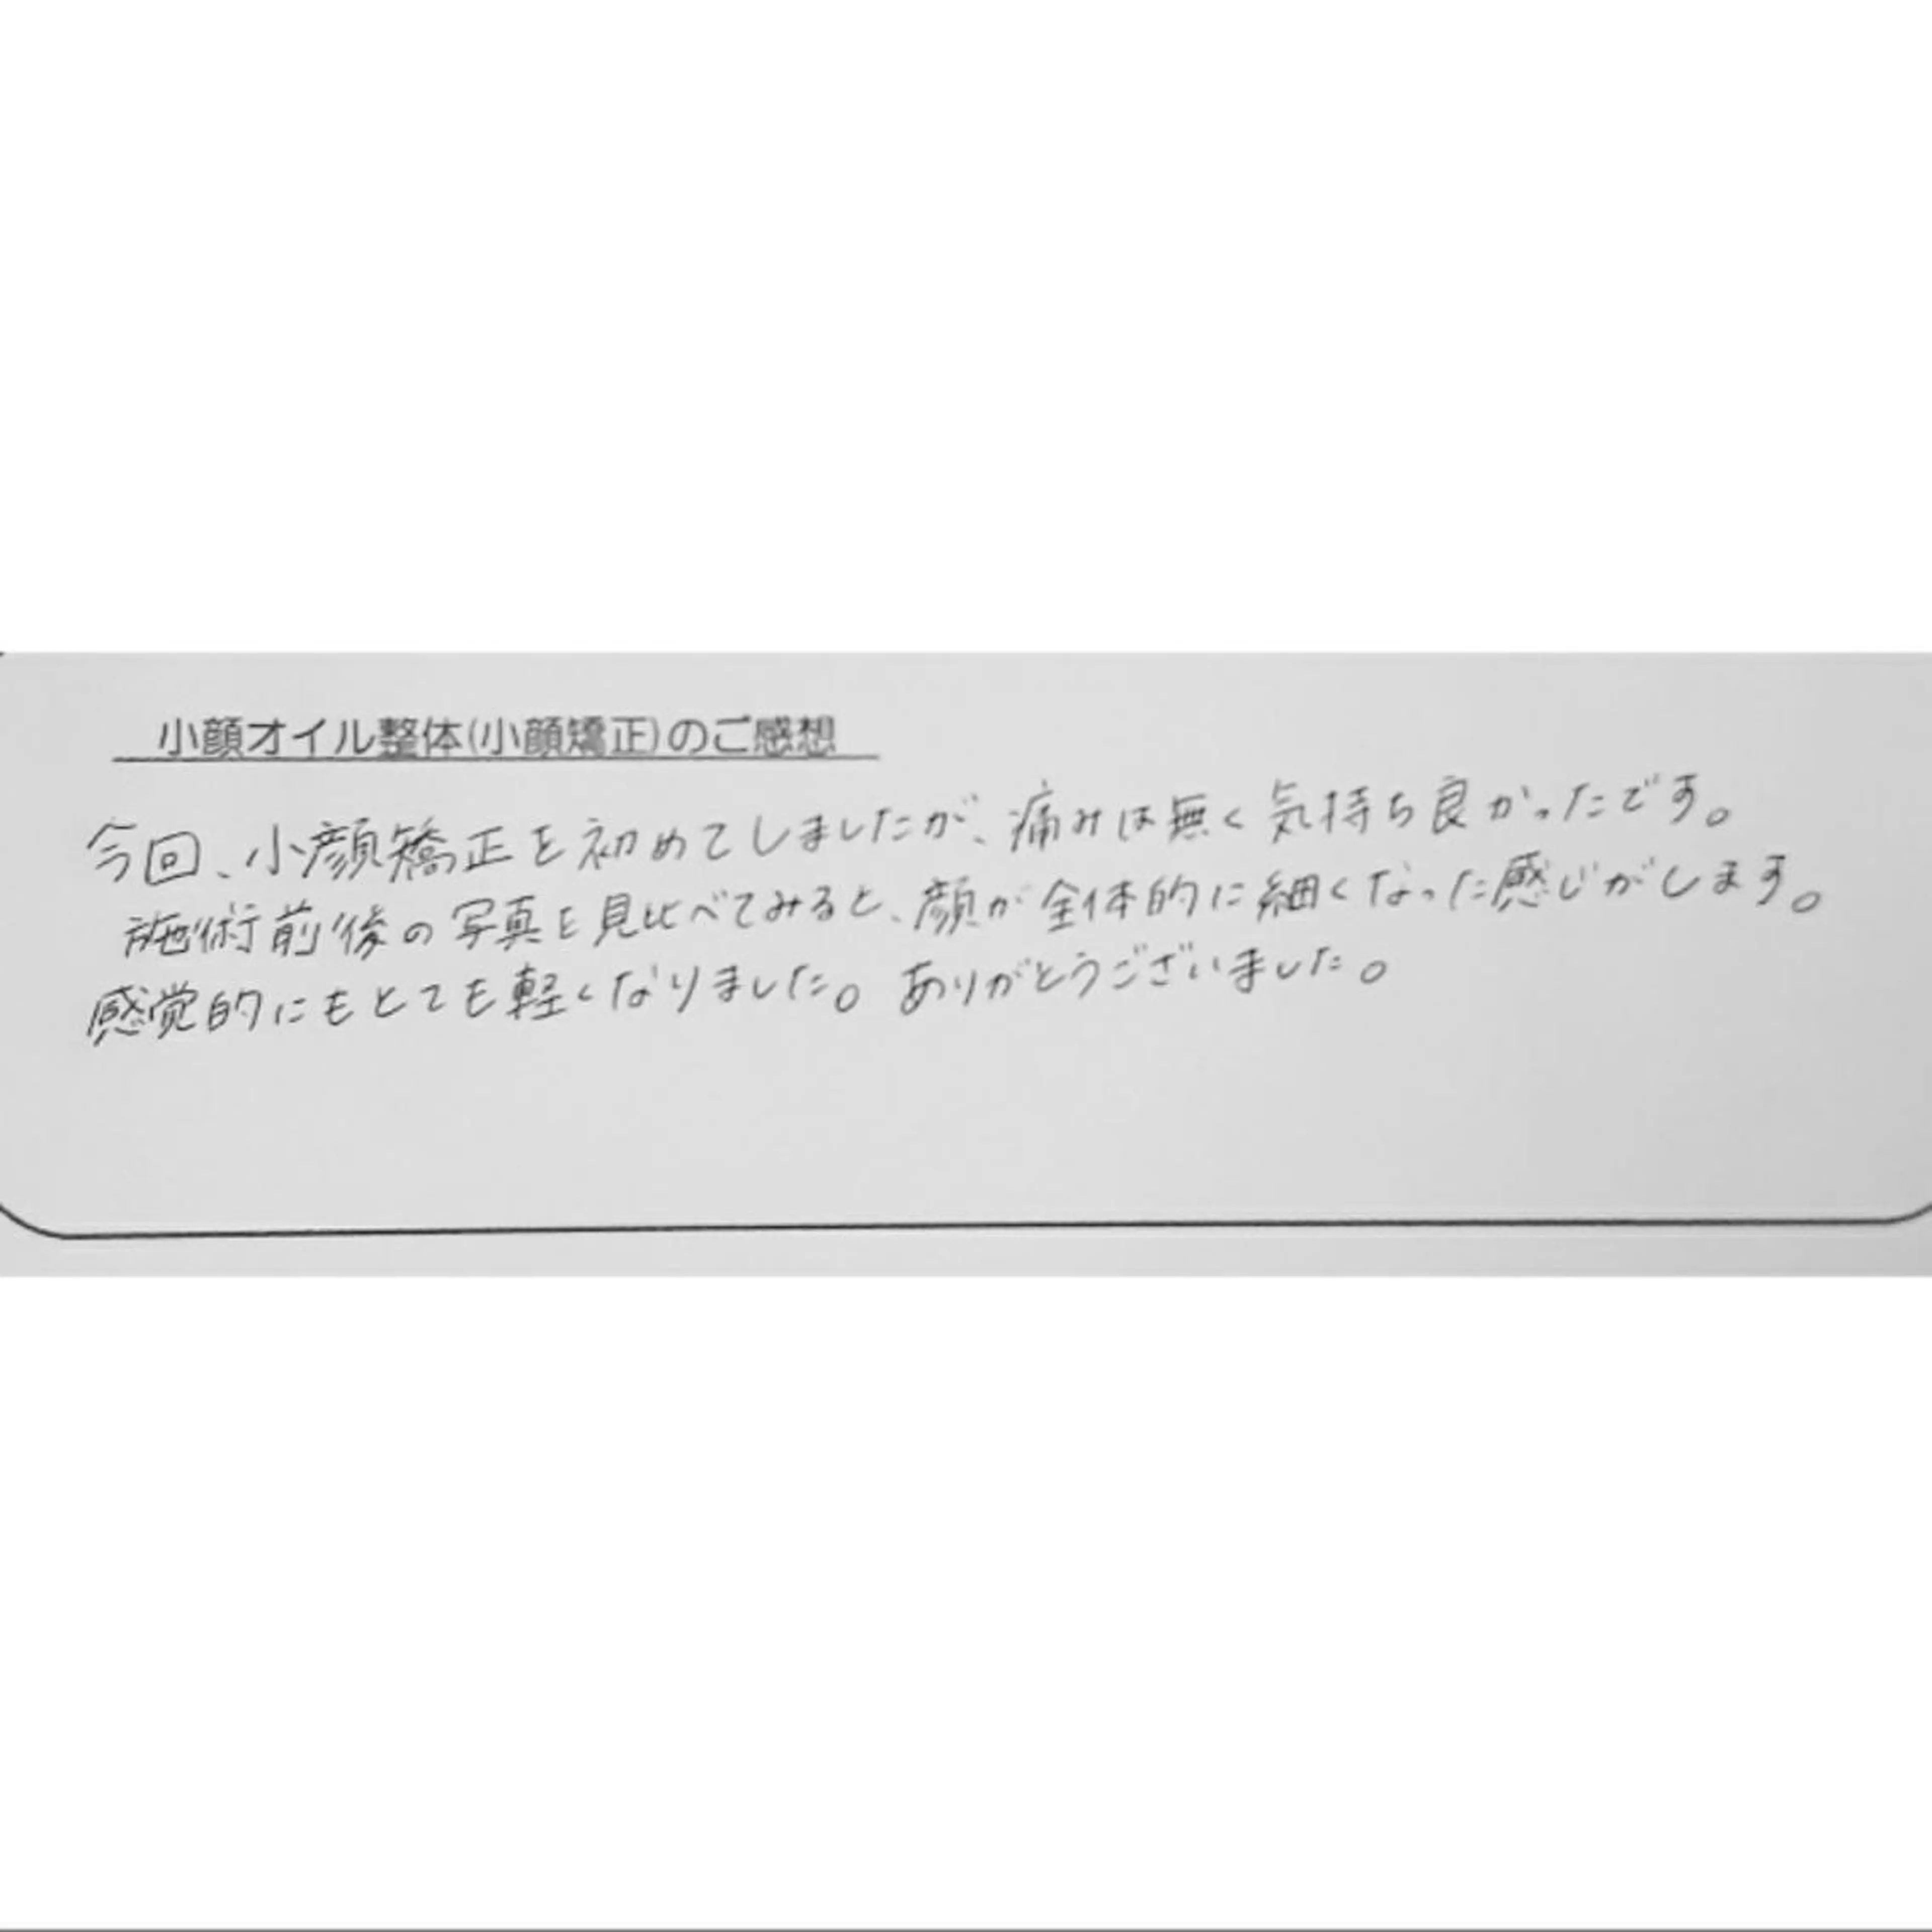 小顔オイル整体(小顔矯正)のご感想
今回、小顔矯正を初めてしましたが、痛みは無く気持ち良かったです。
施術前後の写真を見比べてみると、顔が全体的に細くなった感じがします。
感覚的にもとても軽くなりました。ありがとうございました。